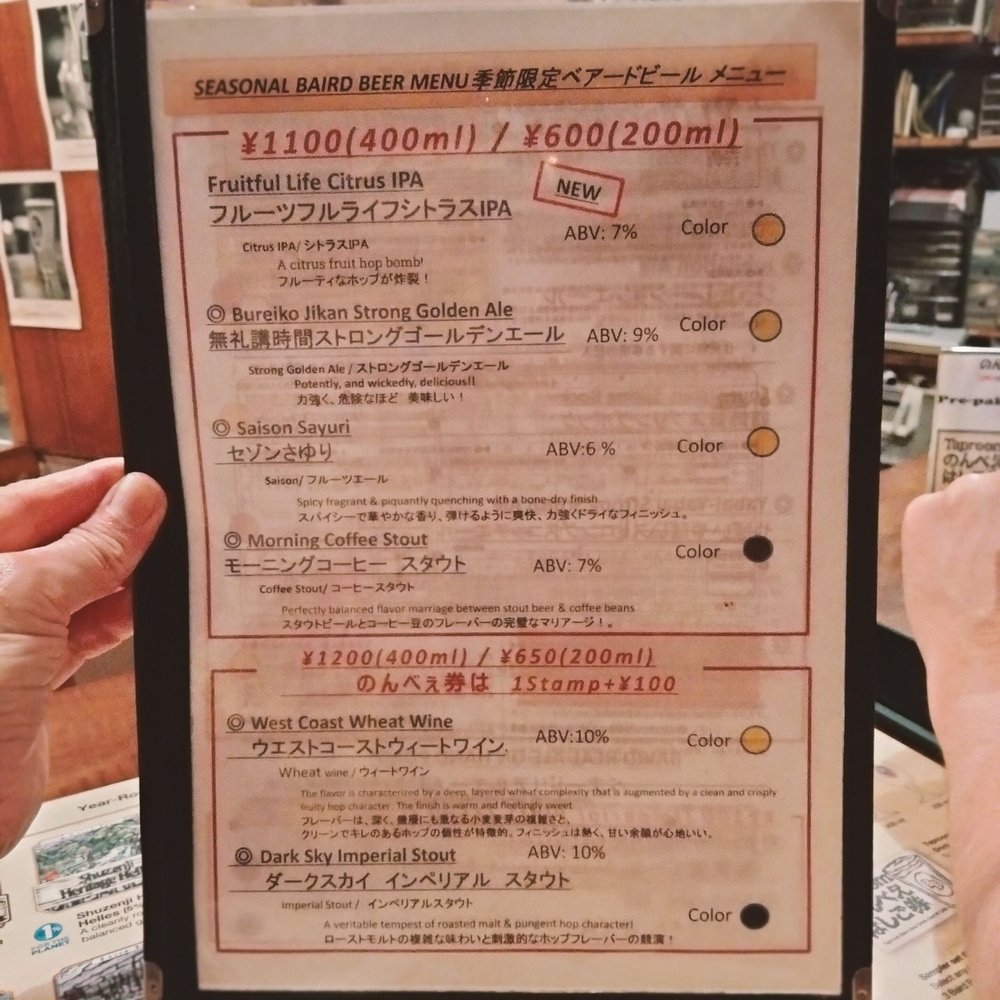 SEASONAL BAIRD BEER MENU 季節限定ベアードビール メニュー
¥1100(400ml) / ¥600(200ml)
Fruitful Life Citrus IPA
NEW
フルーツフルライフシトラスIPA
ABV: 7%
Color
Citrus IPA/ シトラスIPA
A citrus fruit hop bomb!
フルーティなホップが炸裂！
◎ Bureiko Jikan Strong Golden Ale
無礼講時間ストロングゴールデンエール
ABV: 9%
Color
Strong Golden Ale / ストロングゴールデンエール
Potently, and wickedly, delicious!!
力強く、危険なほど 美味しい！
◎ Saison Sayuri
セゾンさゆり
ABV:6 %
Color
Saison/ フルーツエール
Spicy fragrant & piquantly quenching with a bone-dry finish
スパイシーで華やかな香り、弾けるように爽快、力強くドライなフィニッシュ。
◎ Morning Coffee Stout
モーニングコーヒー スタウト
ABV: 7%
Color
Coffee Stout/ コーヒースタウト
Perfectly balanced flavor marriage between stout beer & coffee beans
スタウトビールとコーヒー豆のフレーバーの完璧なマリアージ！。
¥1200(400ml) / ¥650(200ml)
のんべぇ券は 1Stamp+¥100
◎ West Coast Wheat Wine
ウエストコーストウィートワイン.
ABV:10%
Color
Wheat wine / ウィートワイン
The flavor is characterized by a deep, layered wheat complexity that is augmented by a clean and crisply
fruity hop character. The finish is warm and fleetingly sweet.
フレーバーは、深く、幾層にも重なる小麦麦芽の複雑さと、
クリーンでキレのあるホップの個性が特徴的。フィニッシュは熱く、甘い余韻が心地いい。
◎ Dark Sky Imperial Stout
ABV: 10%
ダークスカイ インペリアル スタウト
Imperial Stout / インペリアルスタウト
Color
A veritable tempest of roasted malt & pungent hop character!
ローストモルトの複雑な味わいと刺激的なホップフレーバーの競演！
Year-Ro
Shuzenji
Heritage Hel
Shuzenji H
Helles (5%
A cleanly ro
balanced g
FOR THE
PLANET
Pre-pai
Taproom
のんべえ
Select any